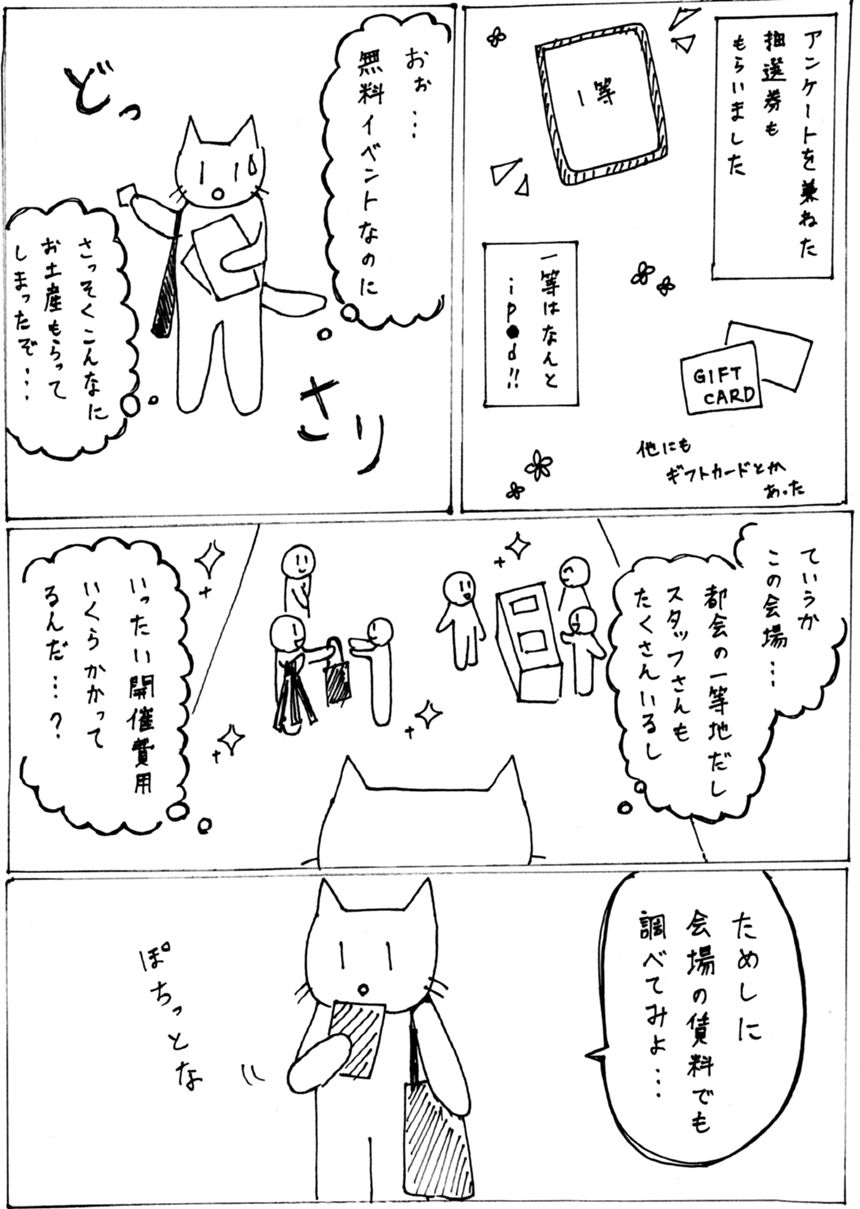 アンケートを兼ねた
抽選券も
もらいました
1等
一等はなんと
ip●d!!
GIFT
CARD
他にも
ギフトカードとか
あった
おぉ…
無料イベントなのに
どっ
さり
さっそくこんなに
お土産もらって
しまったぞ…
ていうか
この会場…
都会の一等地だし
スタッフさんも
たくさんいるし
いったい開催費用
いくらかかって
るんだ…?
ためしに
会場の賃料でも
調べてみよ…
ぽちっとな